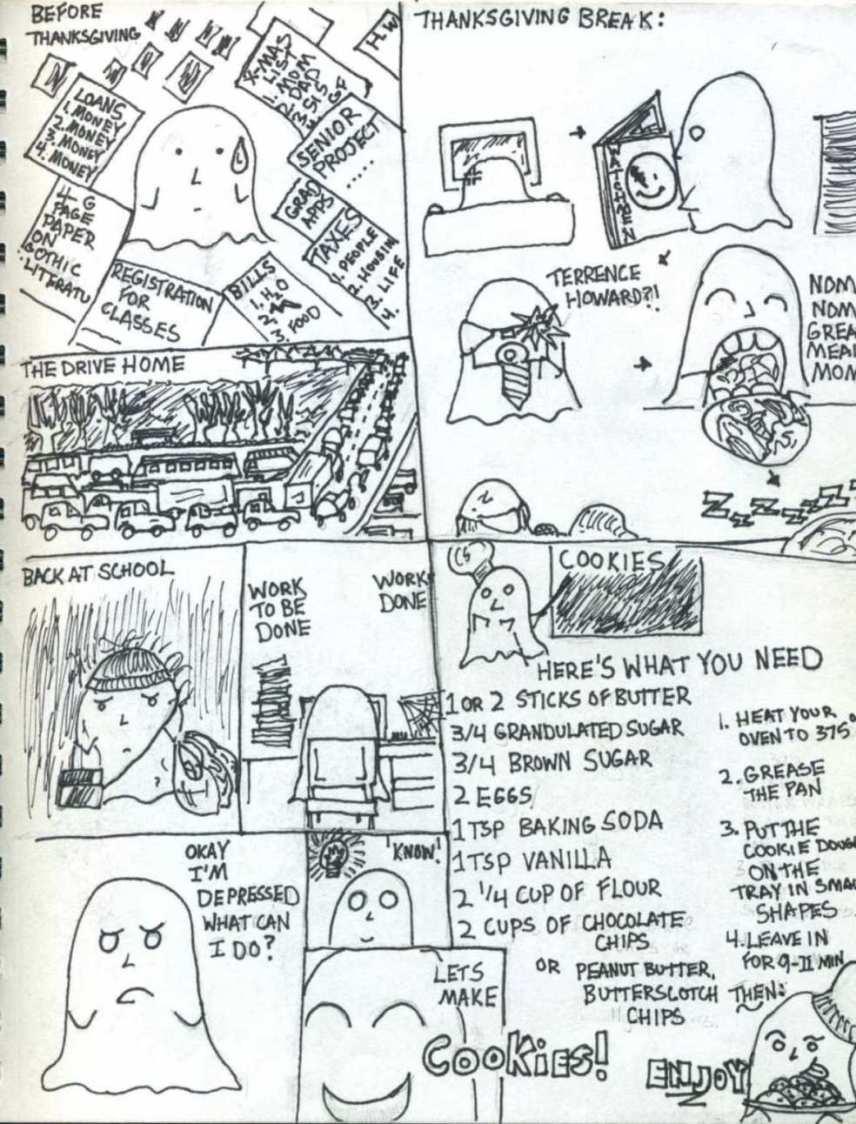 BEFORE
THANKSGIVING
LOANS
1. MONEY
2. MONEY
3. MONEY
4. MONEY
X-MAS
LIST
1. MOM
2. DAD
3. SIS
4. GF
H.W
SENIOR
PROJECT
.....
GRAD
APPS
TAXES
1. PEOPLE
2. HOUSIN
3. LIFE
4.
PAGE
PAPER
ON
GOTHIC
LITERATU
REGISTRATION
FOR
CLASSES
BILLS
1. H2O
2.
3. FOOD
THANKSGIVING BREAK:
WATCHMEN
TERRENCE
HOWARD?!
NOM
NOM
GREA
MEAL
MOM
Z Z Z Z Z Z Z
THE DRIVE HOME
BACK AT SCHOOL
WORK
TO BE
DONE
WORK
DONE
OKAY
I'M
DEPRESSED
WHAT CAN
I DO?
I KNOW!
LETS
MAKE
COOKIES!
COOKIES
HERE'S WHAT YOU NEED
1 OR 2 STICKS OF BUTTER
3/4 GRANDULATED SUGAR
3/4 BROWN SUGAR
2 EGGS
1 TSP BAKING SODA
1 TSP VANILLA
2 1/4 CUP OF FLOUR
2 CUPS OF CHOCOLATE
CHIPS
OR PEANUT BUTTER,
BUTTERSCOTCH
CHIPS
1. HEAT YOUR
OVEN TO 375°
2. GREASE
THE PAN
3. PUT THE
COOKIE DOUGH
ON THE
TRAY IN SMAL
SHAPES
4. LEAVE IN
FOR 9-11 MIN
THEN:
ENJOY